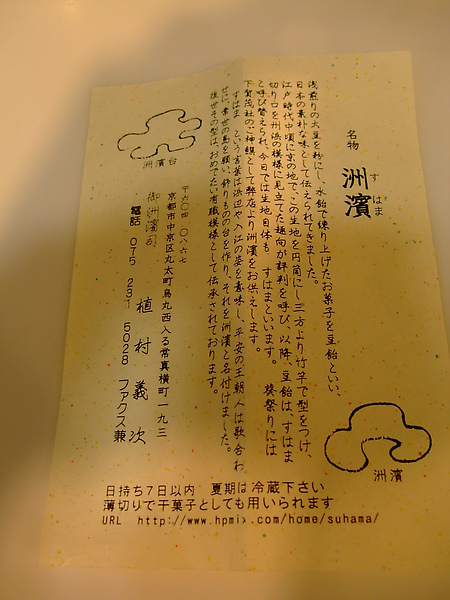 名物
洲濱
すはま
浅煎りの大豆を粉にし、水飴で練り上げたお菓子を豆飴といい、
日本の素朴な味として伝えられてきました。
江戸時代中頃に京の地で、この生地を円筒にし三方より竹竿で型をつけ、
切り口を州浜の模様に見立てた趣向が評判を呼び、以降、豆飴は、すはま
と呼び替えられ、今日では生地自体も すはまといいます。 葵祭りには
下賀茂社のご神饌として弊店より洲濱をお供えします。
すはま という言葉は浜辺や入江の姿を意味し、平安の王朝人は歌合わ
せに、常世の島を願い、飾りものの台を作り、それを洲濱と名付けました。
後世その型は、おめでたい有職模様として伝承されております。
洲濱台
洲濱
〒六〇四‐〇八六七
京都市中京区丸太町烏丸西入る常真横町一九三
御洲濱司 植村義次
電話 075 231 5028 ファクス兼
日持ち7日以内 夏期は冷蔵下さい
薄切りで干菓子としても用いられます
URL http://www.hpmix.com/home/suhama/